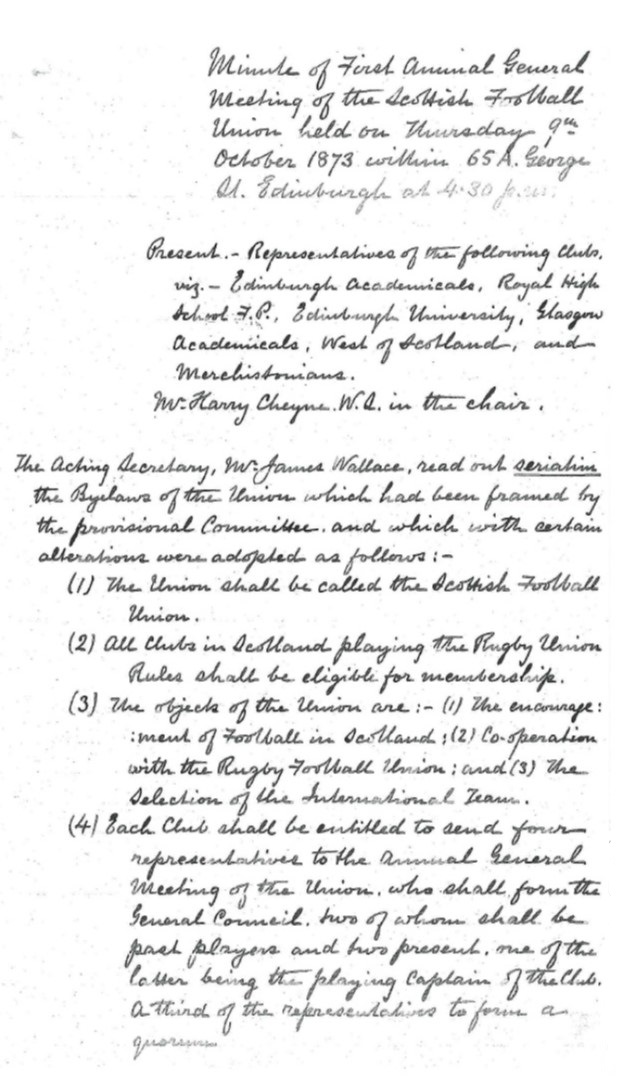 Minute of First Annual General
Meeting of the Scottish Football
Union held on Thursday 9th
October 1873 within 65A. George
St. Edinburgh at 4.30 p.m.
Present. - Representatives of the following Clubs,
viz. - Edinburgh Academicals, Royal High
School F.P., Edinburgh University, Glasgow
Academicals, West of Scotland, and
Merchistonians.
Mr. Harry Cheyne. W.S. in the chair.
The Acting Secretary, Mr. James Wallace, read out seriatim
the Byelaws of the Union which had been framed by
the provisional Committee. and which with certain
alterations were adopted as follows :-
(1) The Union shall be called the Scottish Football
Union.
(2) All Clubs in Scotland playing the Rugby Union
Rules shall be eligible for membership.
(3) The objects of the Union are :- (1) The encourage:
:ment of Football in Scotland ; (2) Co-operation
with the Rugby Football Union ; and (3) The
Selection of the International Team.
(4) Each Club shall be entitled to send four
representatives to the Annual General
Meeting of the Union. who shall form the
General Council. two of whom shall be
past players and two present. one of the
latter being the playing Captain of the Club.
A third of the representatives to form a
quorum